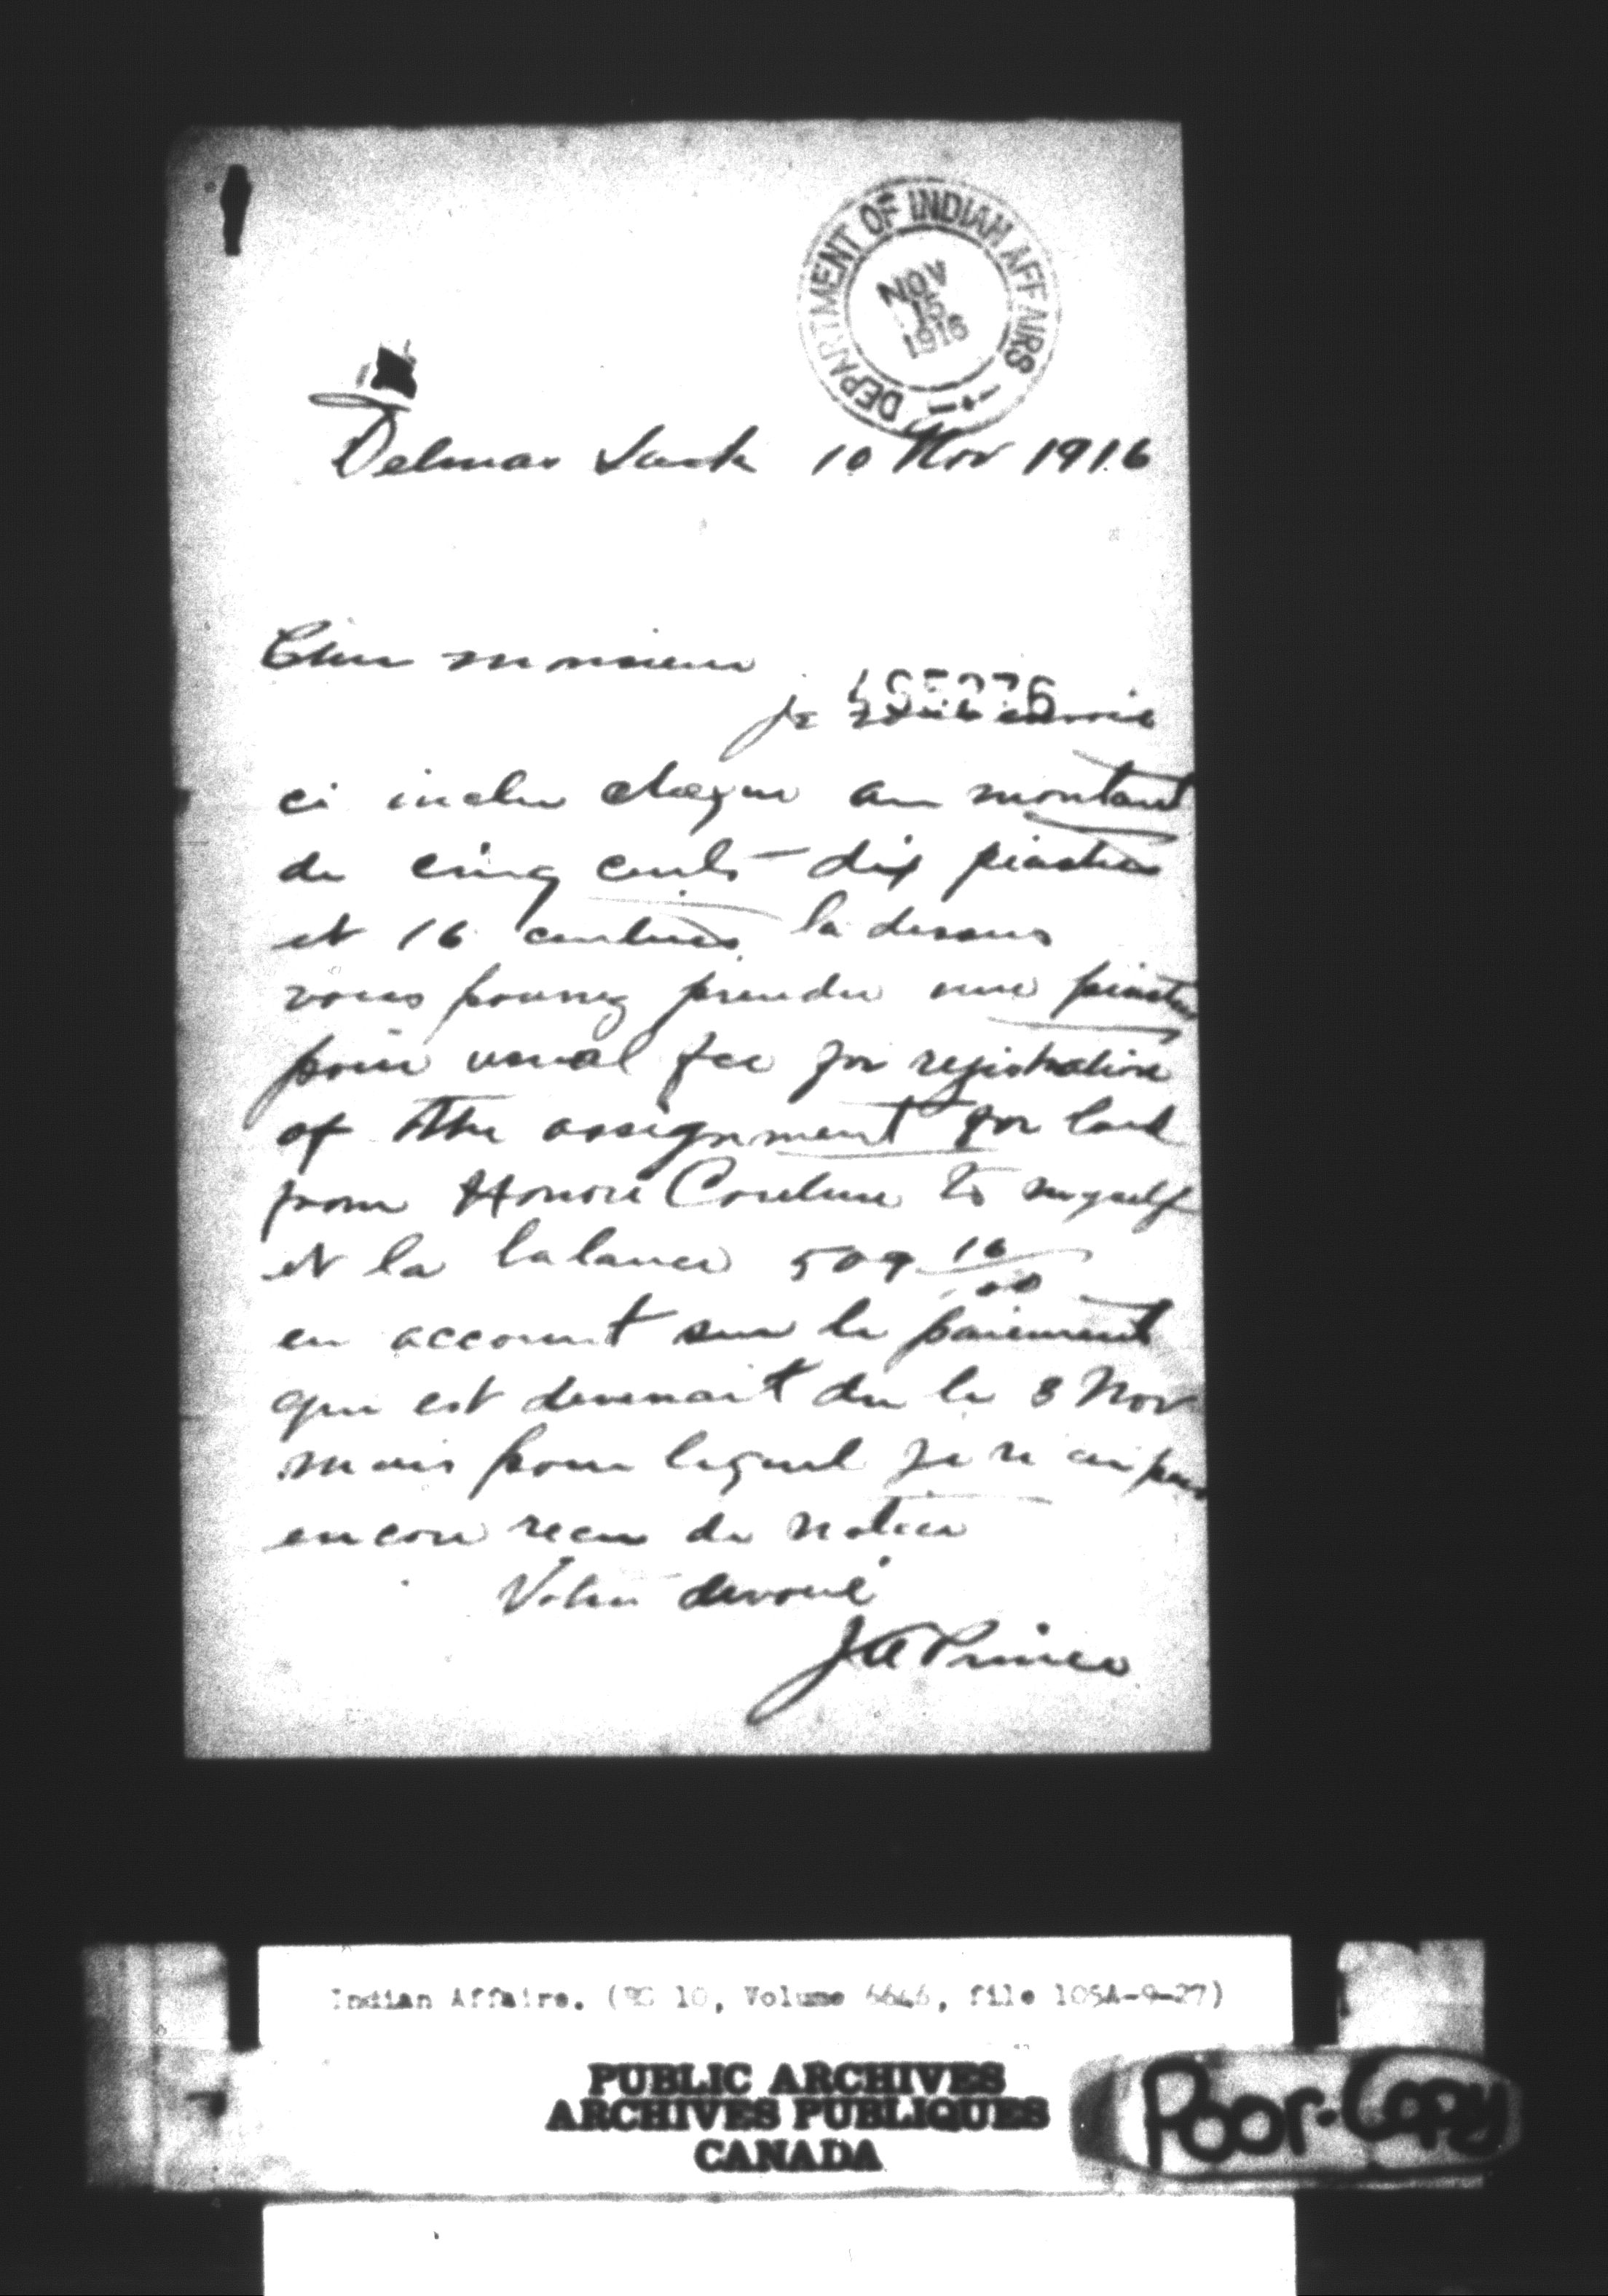 DEPARTMENT OF INDIAN AFFAIRS
NOV
15
1916
Delmas Sask 10 Nov 1916
Cher monsieur
495276
je vous envoie
ci inclu cheque au montant
de cinq cents dix piastres
et 16 centins la dessus
vous pouvez prendre une piastre
pour usual fee for registration
of the assignment for land
from Honoré Couture to myself
et la balance 509 16/00
en account sur le paiement
qui est devenait du le 8 Nov
mais pour lequel je n ai pas
encore recu de notice
Votre devoué
J A Prince
Indian Affairs. (RG 10, Volume 6646, file 105A-9-27)
PUBLIC ARCHIVES
ARCHIVES PUBLIQUES
CANADA
Poor-Copy